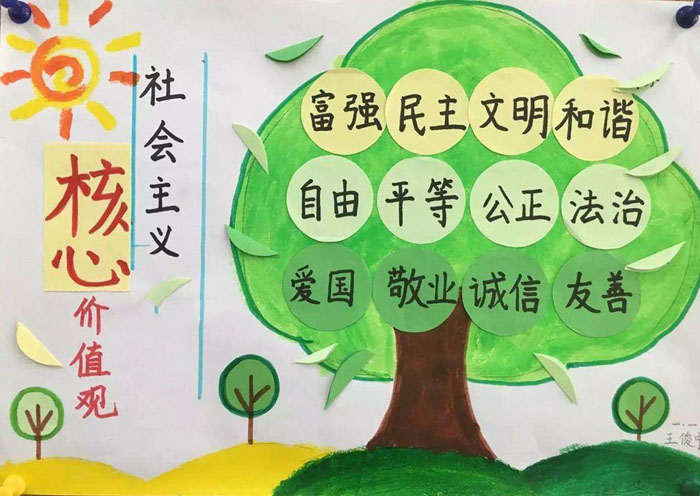 社会主义
核心
价值观
富强 民主 文明 和谐
自由 平等 公正 法治
爱国 敬业 诚信 友善
王俊